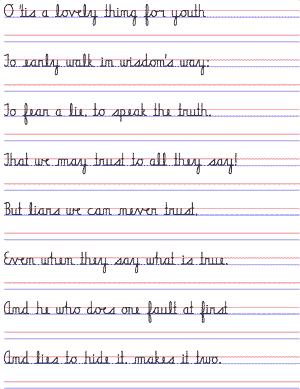 O 'tis a lovely thing for youth
To early walk in wisdom's way;
To fear a lie, to speak the truth,
That we may trust to all they say!
But liars we can never trust,
Even when they say what is true.
And he who does one fault at first
And lies to hide it, makes it two.